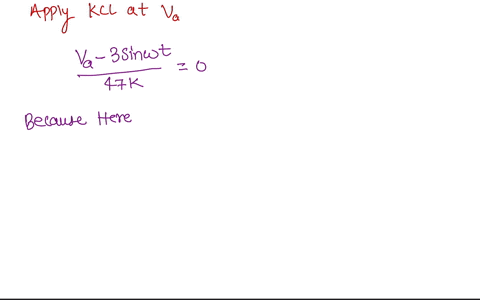 Apply KCL at Va
Va - 3sinωt
47K
= 0
Because Here